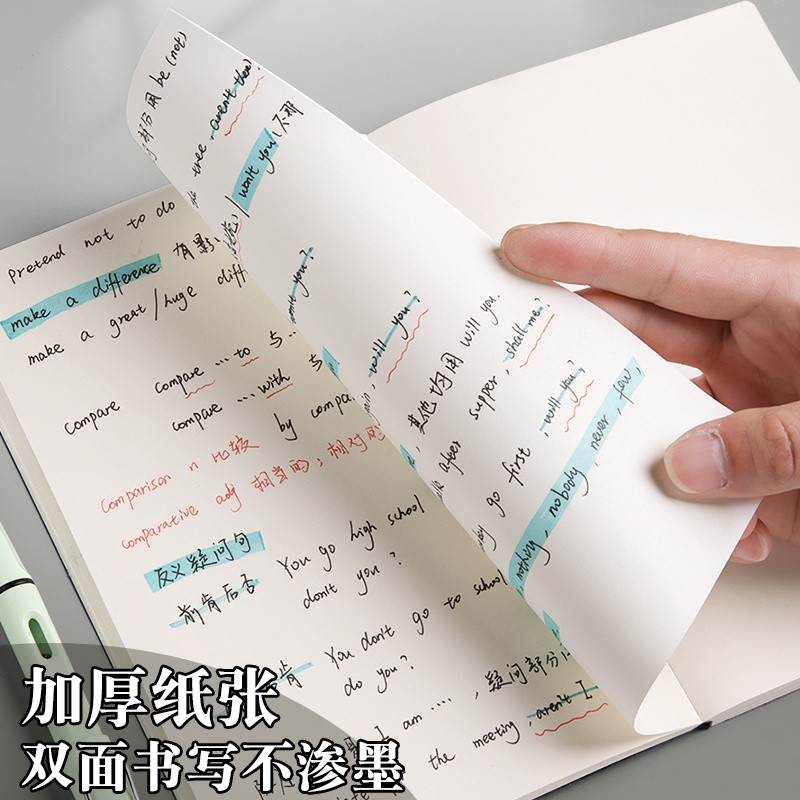 Pretend not to do
make a difference 有影
make a great/huge diff
compare compare ... to 与 ...
compare ... with 与
by compa
comparison n 比较
comparative adj 相当的；相对的
反义疑问句
前肯后否
You go high school
don't you?
肯
You don't go to school
do you?
I am ...., 疑问部分
the meeting, aren't I
部分用 be (not)
tree, aren't there?
/ won't you/不那
will you?
其他均用 will you.
supper, shall me?
go first, will you?
nothing, nobody, never, few,
加厚纸张
双面书写不渗墨